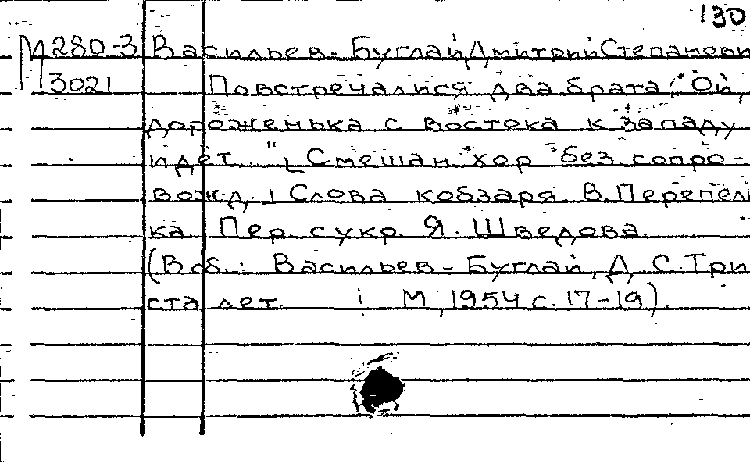 130
М280-3 Васильев-Буглай, Дмитрий Степанови
3021 Повстречалися два брата; "Ой,
дороженька с востока к западу
идет..." [Смешан. хор без сопро-
вожд.] Слова кобзаря В. Перепел
ка. Пер. с укр. Я. Шведова.
(В сб.: Васильев-Буглай, Д. С. Три
ста лет М., 1954 с. 17-19).